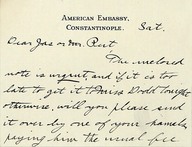 AMERICAN EMBASSY,
CONSTANTINOPLE.
Sat.
Dear Jas or Mr.
The enclosed
note is urgent and if it is too
late to get it to Miss Dodd tonight
otherwise, will you please send
it over by one of your hamals
paying him the usual fee